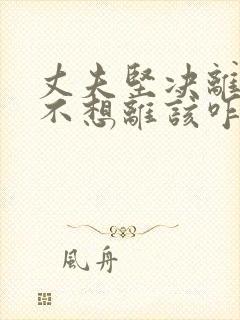 丈夫堅決離
不想離該咋
風舟